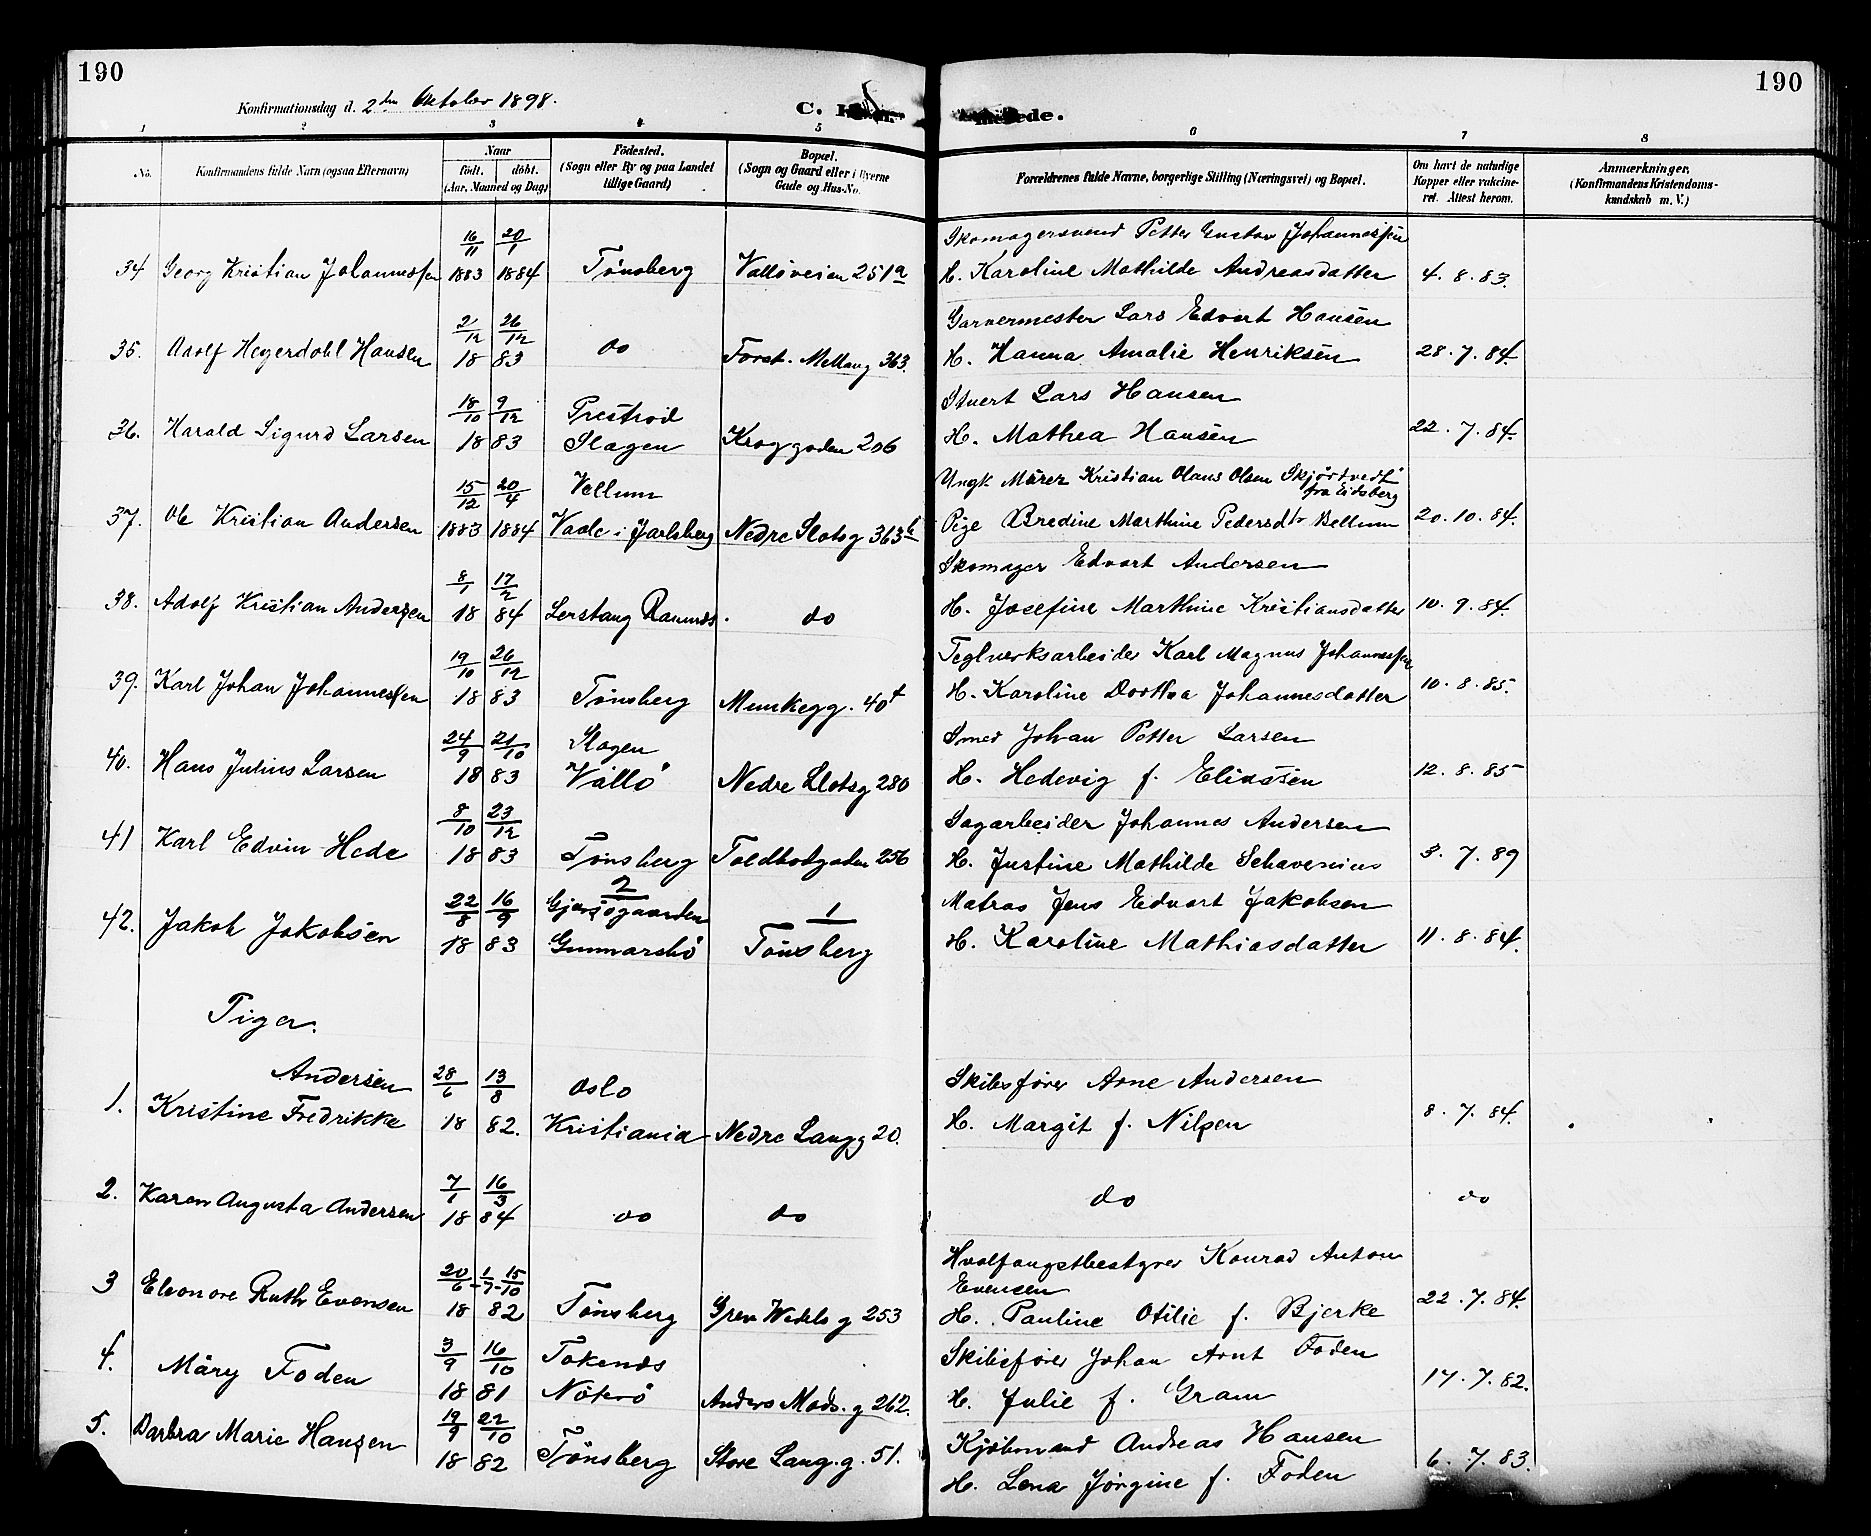 190
190
Konfirmationsdag d. 2den Oktober 1898.
C.
1 2 3 4 5 6 7 8
No.
Konfirmandens fulde Navn (ogsaa Efternavn)
Naar
født. døbt.
(Aar, Maaned og Dag)
Fødested.
(Sogn eller By og paa Landet
tillige Gaard)
Bopæl.
(Sogn og Gaard eller i Byerne
Gade og Hus-No.
Forældrenes fulde Navne, borgerlige Stilling (Næringsvei) og Bopæl.
Om havt de naturlige
Kopper eller vakcine-
ret. Attest herom.
Anmærkninger.
(Konfirmandens Kristendoms-
kundskab m. V.)
16/11 20/1 Skomagersvend Petter Gustav Johannessen
34 Georg Kristian Johannessen 1883 1884 Tønsberg Valløveien 251a H. Karoline Mathilde Andreasdatter 4.8.83.
2/12 26/12 Garvermester Lars Edvart Hansen
35. Adolf Heyerdahl Hansen 18 83 do 363. H. Hanna Amalie Henriksen 28.7.84.
18/10 9/12 Prestrød Stuert Lars Hansen
36. Harald Sigurd Larsen 18 83 Slagen Kroggaden 206 H. Mathea Hansen 22.7.84.
15/12 20/4 Vellum Ungk Mürer Kristian Olaus Olsen Skjørtvedt
fra Eidsberg
37. Ole Kristian Andersen 1883 1884 Vaale i Jarlsberg Nedre Slotsg 363b Pige Bredine Marthine Pedersdtr Bellum 20.10.84.
8/1 17/2 Skomager Edvart Andersen
38. Adolf Kristian Andersen 18 84 Lerstang Ramnes. do H. Josefine Marthine Kristiansdatter 10.9.84.
19/10 26/12 Teglverksarbeider Karl Magnus Johannessen
39. Karl Johan Johannessen 18 83 Tønsberg Munkegg. 40t H. Karoline Dorthea Johannesdatter 10.8.85.
24/9 21/10 Slagen Smed Johan Petter Larsen
40. Hans Julius Larsen 18 83 Vallø Nedre Slotsg 280 H. Hedevig f. Eliassen 12.8.85
8/10 23/12 Sagarbeider Johannes Andersen
41 Karl Edvin Hede 18 83 Tønsberg Toldbodgaden 256 H. Justine Mathilde Schavenius 3.7.89
2
22/8 16/9 1 Matros Jens Edvart Jakobsen
42. Jakob Jakobsen 18 83 Gunnarsbø Tønsberg H. Karoline Mathiasdatter 11.8.84.
Piger.
Andersen 28/6 13/8 Oslo Skibsfører Arne Andersen
1. Kristine Fredrikke 18 82. Kristiania Nedre Langg 20. H. Margit f. Nilsen 8.7.84.
7/1 16/3
2. Karen Augusta Andersen 18 84 do do do do
20/6 - 1/7 - 15/10 Hvalfangstbestyrer Konrad Anton
Evensen
3 Eleonore Ruth Evensen 18 82 Tønsberg Grev Wedels g 253 H. Pauline Otilie f. Bjerke 22.7.84.
3/9 16/10 Tokenes Skibsfører Johan Arnt Foden
4. Märy Foden 18 81 Nøterø Anders Mads. g 262. H. Julie f. Gram 17.7.82.
19/9 22/10 Kjøbmand Andreas Hansen
5. Barbra Marie Hansen 18 82 Tønsberg Store Lang.g. 51. H. Lena Jørgine f. Foden 6.7.83.